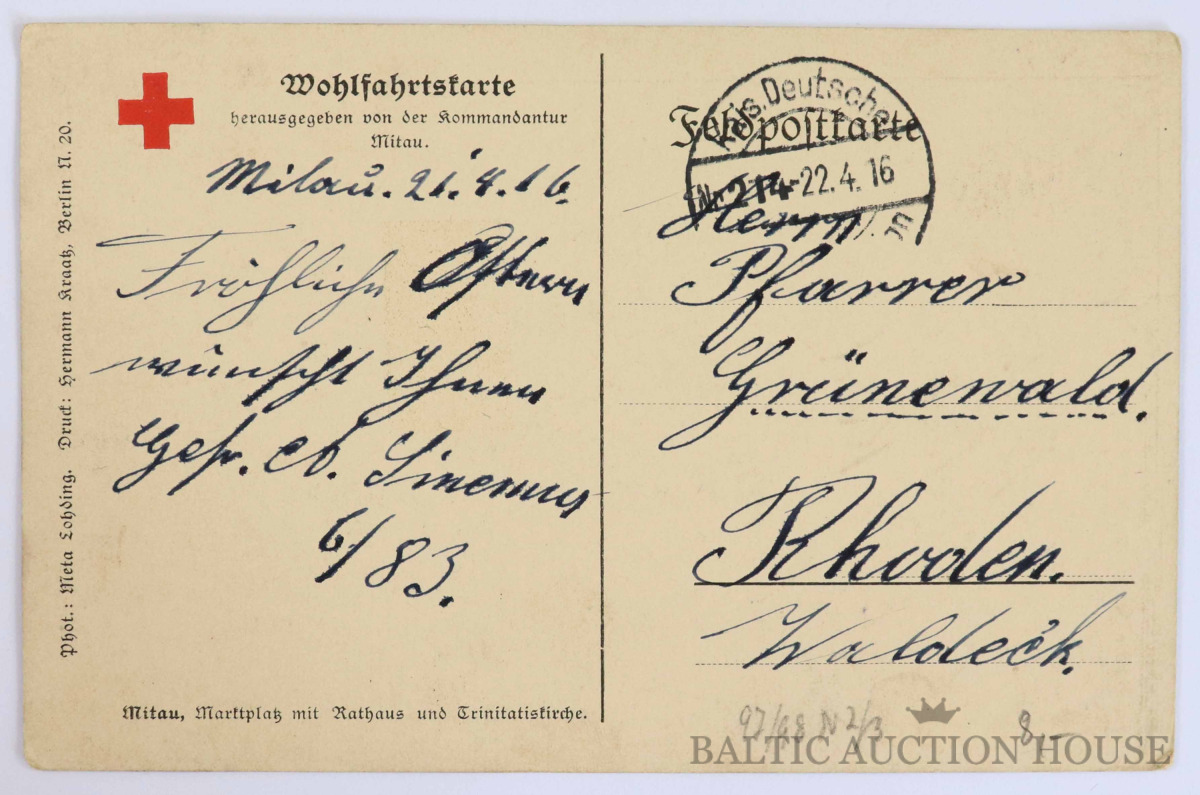 Wohlfahrtskarte
herausgegeben von der Kommandantur
Mitau.
Mitau. 21.4.16.
Fröhliche Ostern
wünscht Ihnen
Gefr. Sinemus
6/83.
Mitau, Marktplatz mit Rathaus und Trinitatiskirche.
Phot.: Meta Lohding. Druck: Hermann Kraatz, Berlin N. 20.
Feldpostkarte
Kais. Deutsche
Nr. 214 -22.4.16
Herrn
Pfarrer
Grünewald.
Rhoden.
Waldeck.
97/68 N 2/3
8,-
BALTIC AUCTION HOUSE